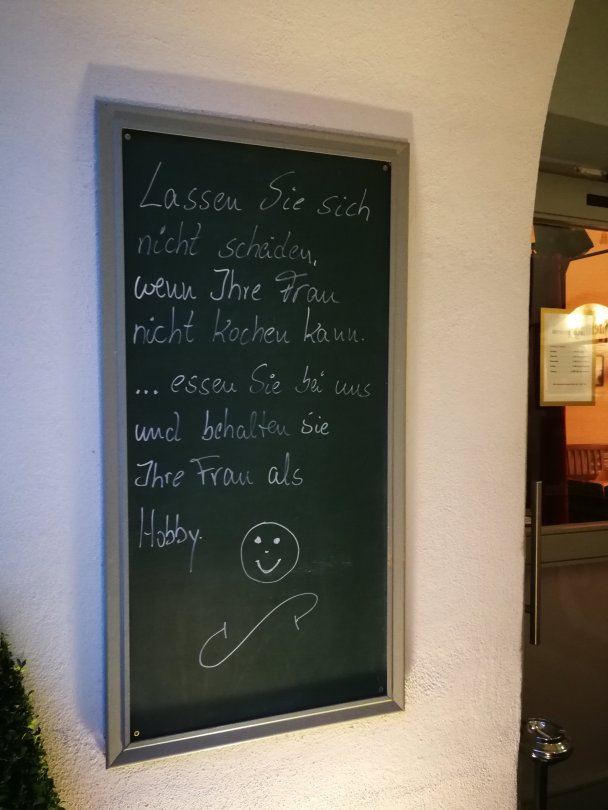 Lassen Sie sich
nicht scheiden,
wenn Ihre Frau
nicht kochen kann.
... essen Sie bei uns
und behalten sie
Ihre Frau als
Hobby.